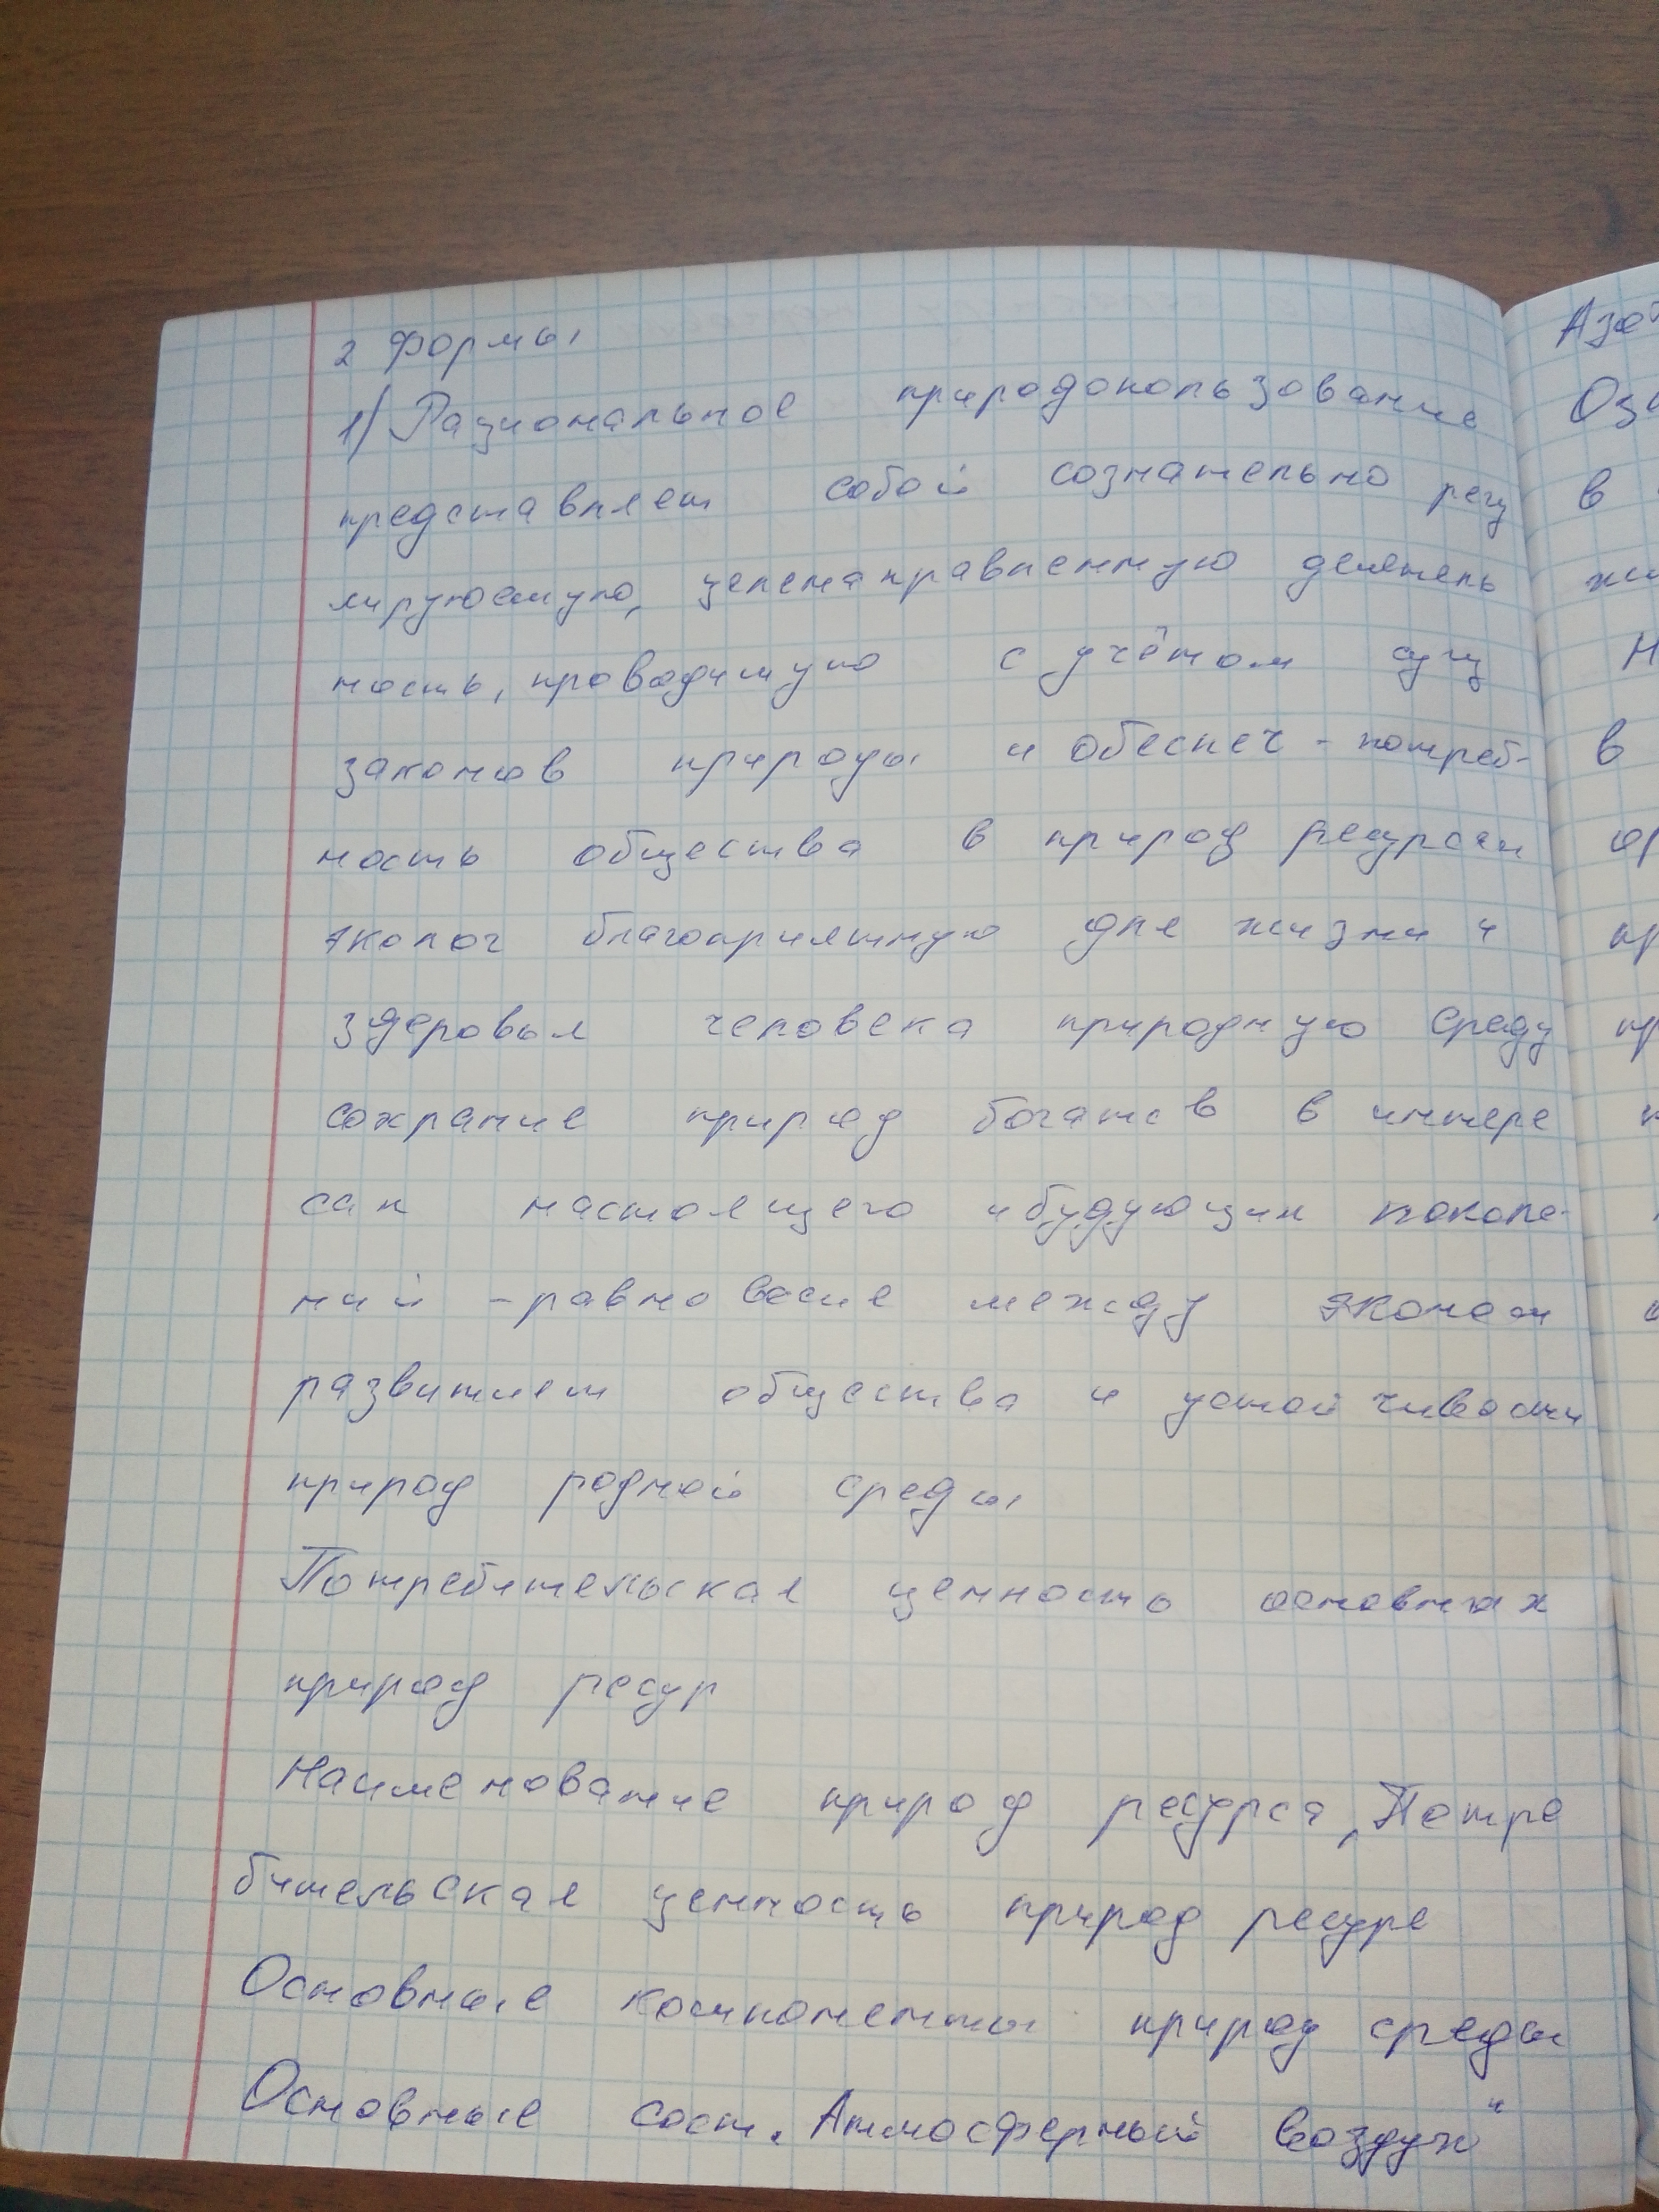 2 формы
1) Рациональное природопользование
представляет собой сознательно регу
лируюемую, целенаправленную деятель
ность, проводимую с учётом
законов природы и обеспеч - потреб-
ность общества в природ ресурсах
эколог благоприятную для жизни и
здоровья человека природную среду
сохрание природ богатв в интере
сах настоящего и будующих поколе-
ний - равновесие между эконом
развитием общества и устойчивости
природ родной среды
Потребительская ценность основных
природ ресур
Наименование природ ресурса, Потре
бительская ценность природ ресурс
Основные компоненты природ среды
Основные сост. Атмосферный воздух
Азо
Ози
в
жи
Н
в
ор
пр
пр